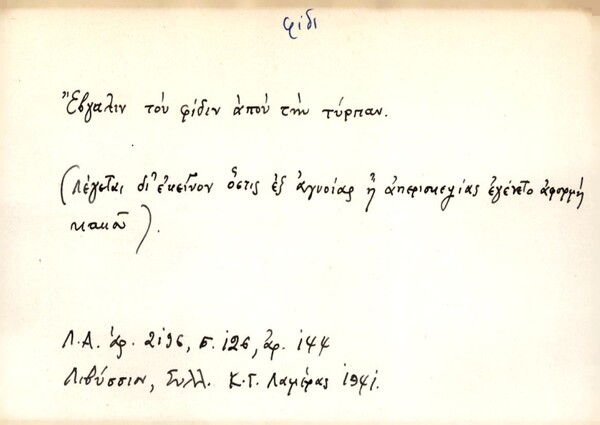 φίδι
Ἔβγαλιν τὸν φίδιν ἀποὺ τὴν τύρπαν.
(Λέγεται δι' ἐκεῖνον ὅστις ἐξ ἀγνοίας ἢ ἀπερισκεψίας ἐγένετο ἀφορμὴ
κακοῦ).
Λ.Α. ἀρ. 2196, σ. 126, ἀρ. 144
Λιβύσσιον, Συλλ. Κ.Γ. Λαμέρας 1941.